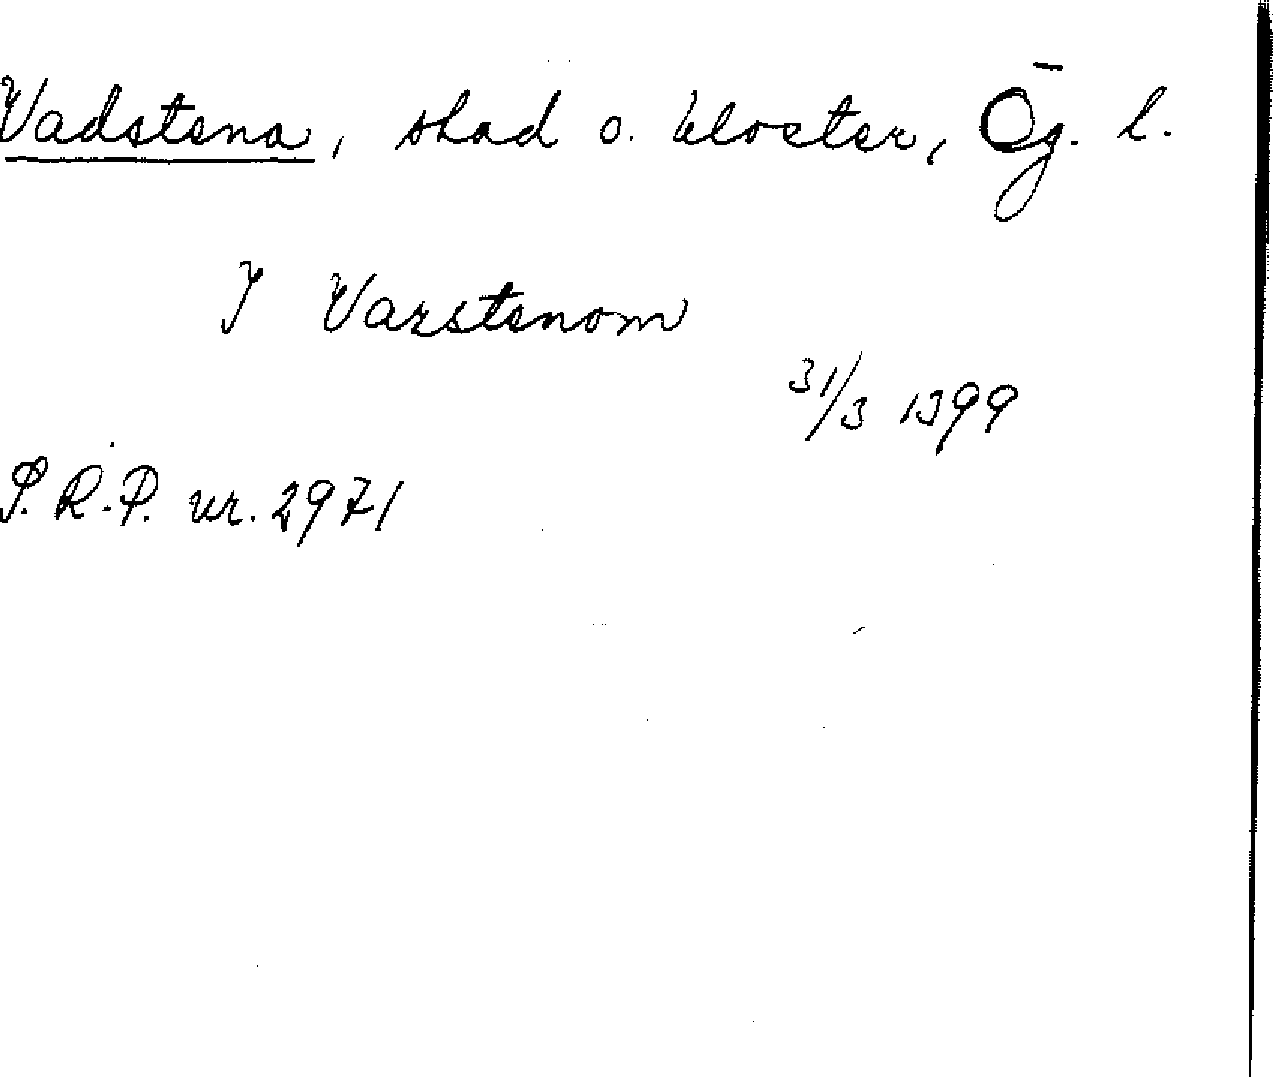 Vadstena, stad o. kloster, Ög. l.
J Varstenom
31/3 1399
S.R.P. nr. 2971